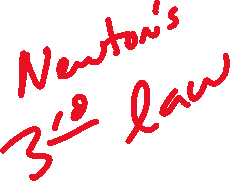 Newton's
3rd law